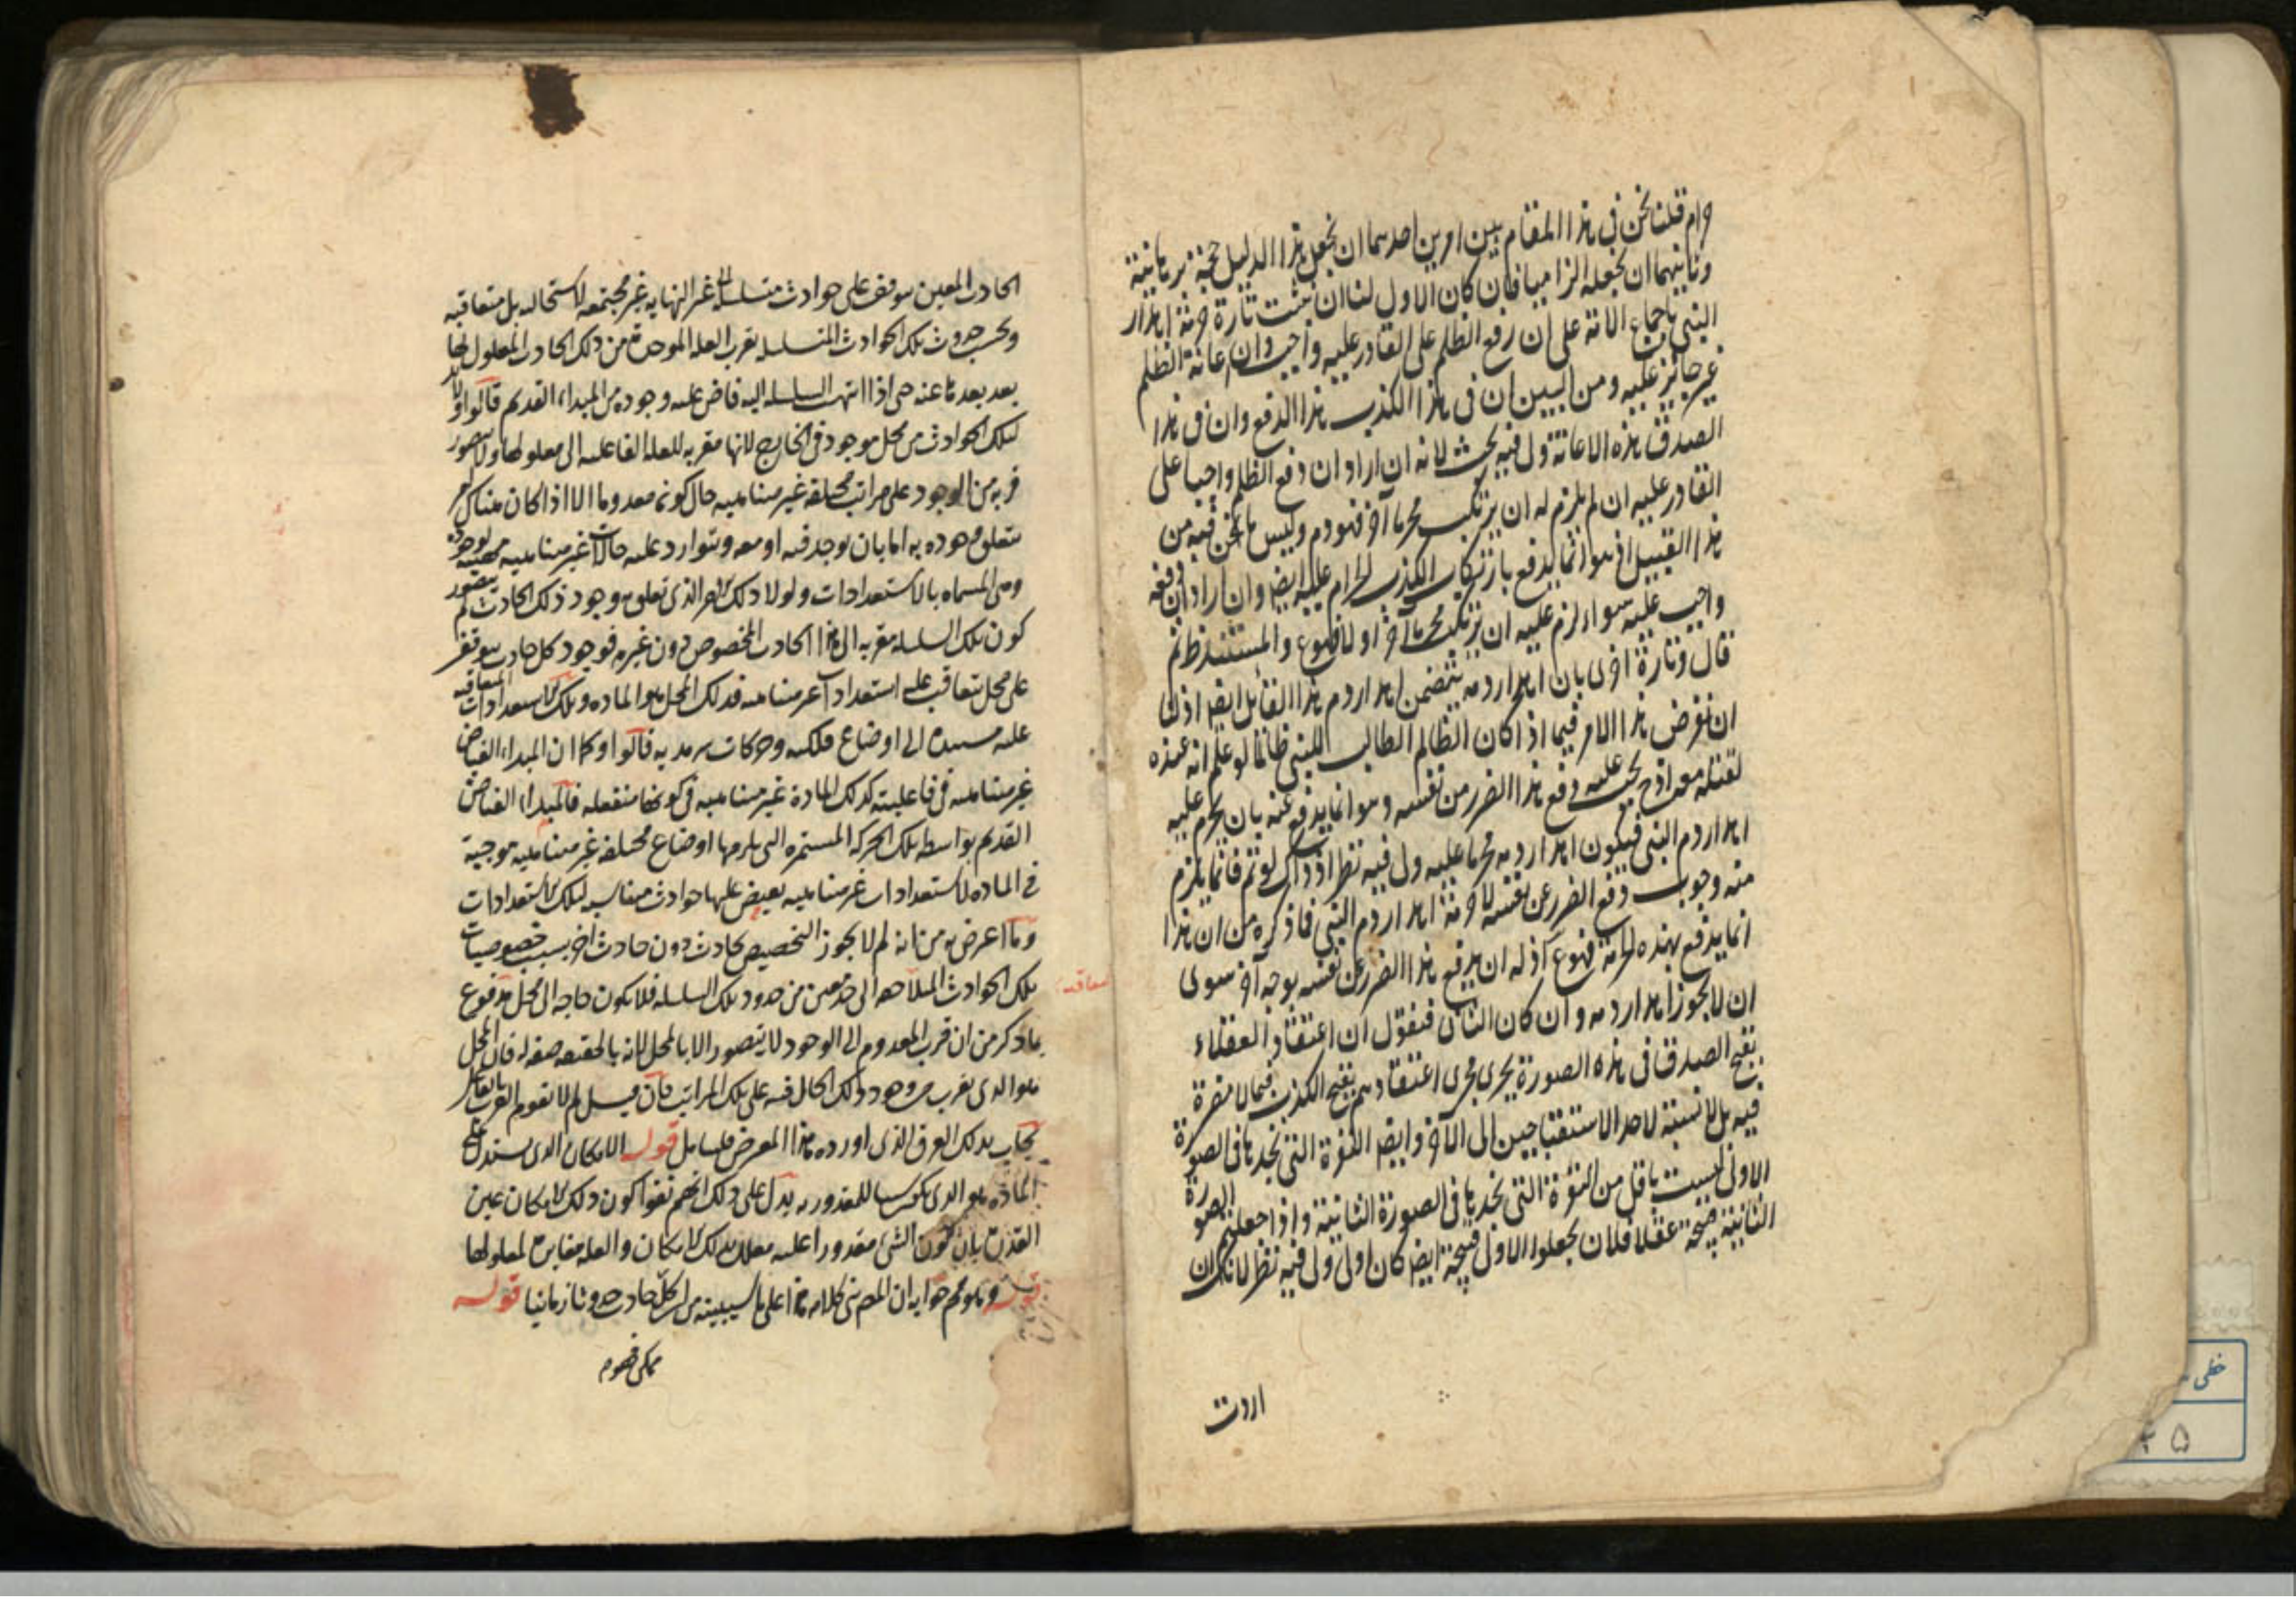 حرام قلنا نحن فى هذا المقام بين امرين احدهما ان نجعل هذا الدليل حجة برهانية
وثانيهما ان نجعله الزاميا فان كان الاول لنا ان نثبت تارة حرمة اهدار
النبى باجماع الامة على ان رفع الظلم على القادر عليه واجب وان اعانة الظلم
غير جائز عليه ومن البين ان فى هذا الكذب هذا الدفع وان فى هذا
الصدق هذه الاعانة ولى فيه بحث لانه ان اراد ان دفع الظلم واجبا على
القادر عليه ان لم يلزم له ان يرتكب محرما آخر فهو دم وليس ما نحن فيه من
هذا القبيل اذ هو انما يدفع بارتكاب الكذب الحرام عليه ايضا وان اراد ان دفعه
واجب عليه سواء لزم عليه ان يرتكب محرما آخر او لا فهو ع والمستند ظ ثم
قال وتارة اخرى بان اهدار دمه يتضمن اهدار دم هذا القائل ايضا اذ لنا
ان نفرض هذا الامر فيما اذا كان الظالم الطالب للنبى ظانا لو علم انه عنده
لقتله معه اذ ح يجب عليه دفع هذا الضرر من نفسه وهو انما يدفع عنه بان يحرم عليه
اهدار دم النبى فيكون اهدار دمه محرما عليه ولى فيه نظر اذ ذاك لو تم فانما يلزم
منه وجوب دفع الضرر عن نفسه لا حرمة اهدار دم النبى فما ذكره من ان هذا
انما يدفع بهذه الحرمة فهو ع اذ له ان يدفع هذا الضرر عن نفسه بوجه آخر سوى
ان لا يجوز اهدار دمه وان كان الثانى فنقول ان اعتقاد العقلاء
بقبح الصدق فى هذه الصورة يجرى مجرى اعتقادهم بقبح الكذب فيما لا مضرة
فيه بل لا نسبة لاحد الاستقباحين الى الآخر وايضا النفرة التى نجدها فى الصورة
الاولى ليست باقل من النفرة التى نجدها فى الصورة الثانية واذا جعلتم الصورة
الثانية قبيحة عقلا فلان يجعلوا الاول قبيحة ايضا كان اولى ولى فيه نظر لانك ان
اردت
الحادث المعين يتوقف على حوادث متسلسلة الى غير النهاية غير مجتمعة لاستحالته بل متعاقبة
وبحسب حدوث تلك الحوادث المتسلسلة تقرب العلة الموجدة من ذلك الحادث المعلول لها
بعد بعدها عنه حتى اذا انتهت السلسلة اليه فاض عليه وجوده من المبداء القديم قالوا ولا بد
لتلك الحوادث من محل موجود فى الخارج لانها مقربة للعلة الفاعلية الى معلولها ولا يتصور
قربه من الوجود على مراتب مختلفة غير متناهية حال كونه معدوما الا اذا كان هناك امر
يتعلق وجوده به اما بان يوجد فيه او معه ويتوارد عليه حالات غير متناهية
وهى المسماة بالاستعدادات ولولا ذلك الامر الذى تعلق به وجود ذلك الحادث لم يتصور
كون تلك السلسلة مقربة الى هذا الحادث المخصوص دون غيره فوجود كل حادث يتوقف
على محل يتعاقب عليه استعدادات غير متناهية فذلك المحل هو المادة وتلك الاستعدادات المتعاقبة
عليه مستندة الى اوضاع فلكية وحركات سرمدية قالوا وكما ان المبداء الفياض
غير متناهية فى فاعليته كذلك المادة غير متناهية فى كونها منفعلة فالمبداء الفياض
القديم بواسطة تلك الحركة المستمرة التى يلزمها اوضاع مختلفة غير متناهية موجبة
فى المادة لاستعدادات غير متناهية يفيض عليها حوادث متناسبة لتلك الاستعدادات
وما اعترض به من انه لم لا يجوز التخصيص بحادث دون حادث آخر بسبب خصوصيات
تلك الحوادث المتلاحقة الى حد معين من حدود تلك السلسلة فلا يكون حاجة الى محل مدفوع
بما ذكر من ان قرب المعدوم الى الوجود لا يتصور الا بالمحل لانه بالحقيقة صفة له فان المحل
هو الذى يقرب من وجود ذلك الحال فيه على تلك المراتب فان قيل لم لا يقوم القرب بالفاعل
يجاب بذلك الفرق الذى اورده هذا المعترض فليتأمل قوله الامكان الذى يستدعى
المادة هو الذى يكون سببا للمقدورية يدل على ذلك انهم نفوا كون ذلك الامكان عين
القدرة بان كون الشئ مقدورا عليه معلل بذلك الامكان والعلة مغايرة لمعلولها
قوله وهو مم جوابه ان المص بنى كلامه هذا على ما سيبينه من ان لكل حادث حدوثا زمانيا قوله
ممكن فهو م
متعاقبة